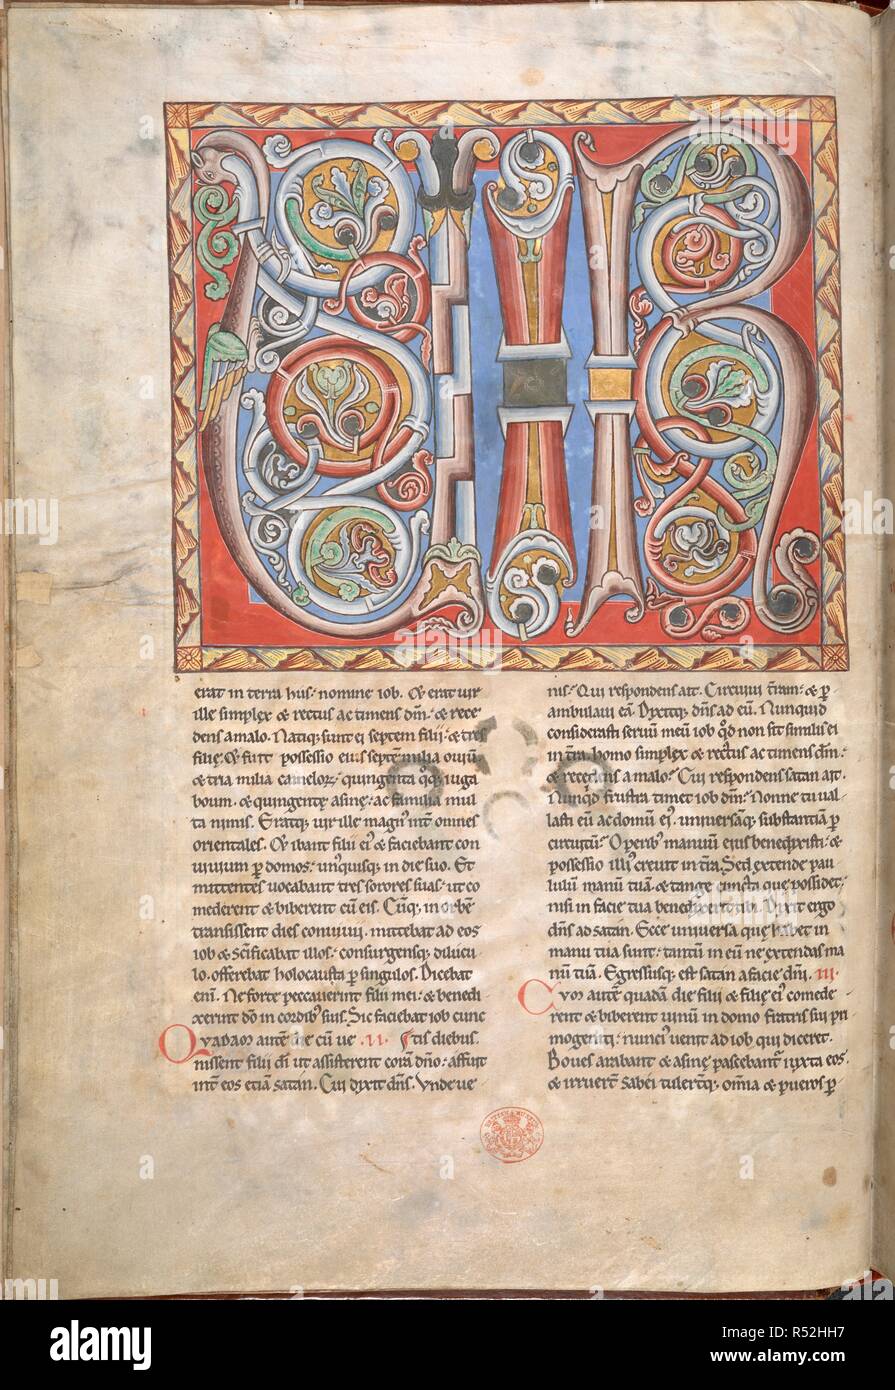 VIR
erat in terra hus· nomine iob. Et erat uir
ille simplex & rectus ac timens dm̄· & rece
dens a malo. Natiq; sunt ei septem filii· & tres
filię. Et fuit possessio eius septē milia ouiū
& tria milia camelor̄· quingenta q̨q; iuga
boum· & quingentę asinę· ac familia mul
ta nimis. Eratq; uir ille magn' int̄ omnes
orientales. Et ibant filii ei' & faciebant con
uiuium p̱ domos· un'quisq; in die suo. Et
mittentes uocabant tres sorores suas· ut co
mederent & biberent cū eis. Cūq; in orbē
transissent dies conuiuii· mittebat ad eos
iob & sc̄ificabat illos· consurgensq; dilucu
lo· offerebat holocausta p̱ singulos. Dicebat
enī. Ne forte peccauerint filii mei· & benedi
xerint dō in cordib; suis. Sic faciebat iob cunc
tis diebus. II.
Quadam autē die cū ue
nissent filii dī ut assisterent corā dn̄o· affuit
int̄ eos etiā satan. Cui dixit dn̄s. Vnde ue
nis· Qui respondens ait. Circuiui t̄ram· & p̱
ambulaui eā. Dixitq; dn̄s ad eū. Nunquid
considerasti seruū meū iob qd̄ non sit similis ei
in t̄ra· homo simplex & rectus ac timens dm̄·
& recedens a malo? Cui respondens satan ait.
Nunqd̄ frustra timet iob dm̄? Nonne tu ual
lasti eū ac domū ei'· uniuersāq; substantiā p̱
circuitū? Operib; manuū eius benedixisti· &
possessio illi' creuit in t̄ra. Sed extende pau
lulū manū tuā· & tange cuncta que possidet·
nisi in facie tua benedixerit tibi. Dixit ergo
dn̄s ad satān. Ecce uniuersa quę habet in
manu tua sunt· tantū in eū ne extendas ma
nū tuā. Egressusq; est satan a facie dn̄i. III.
Cvm autē quadā die filii & filię ei' comede
rent & biberent uinū in domo fratris sui pri
mogeniti· nunci' uenit ad iob qui diceret.
Boues arabant & asinę pascebant' iuxta eos·
& irruert̄ sabei tulertq; omnia & pueros p̱
BRITISH MUSEUM
alamy
Image ID: R52HH7
www.alamy.com